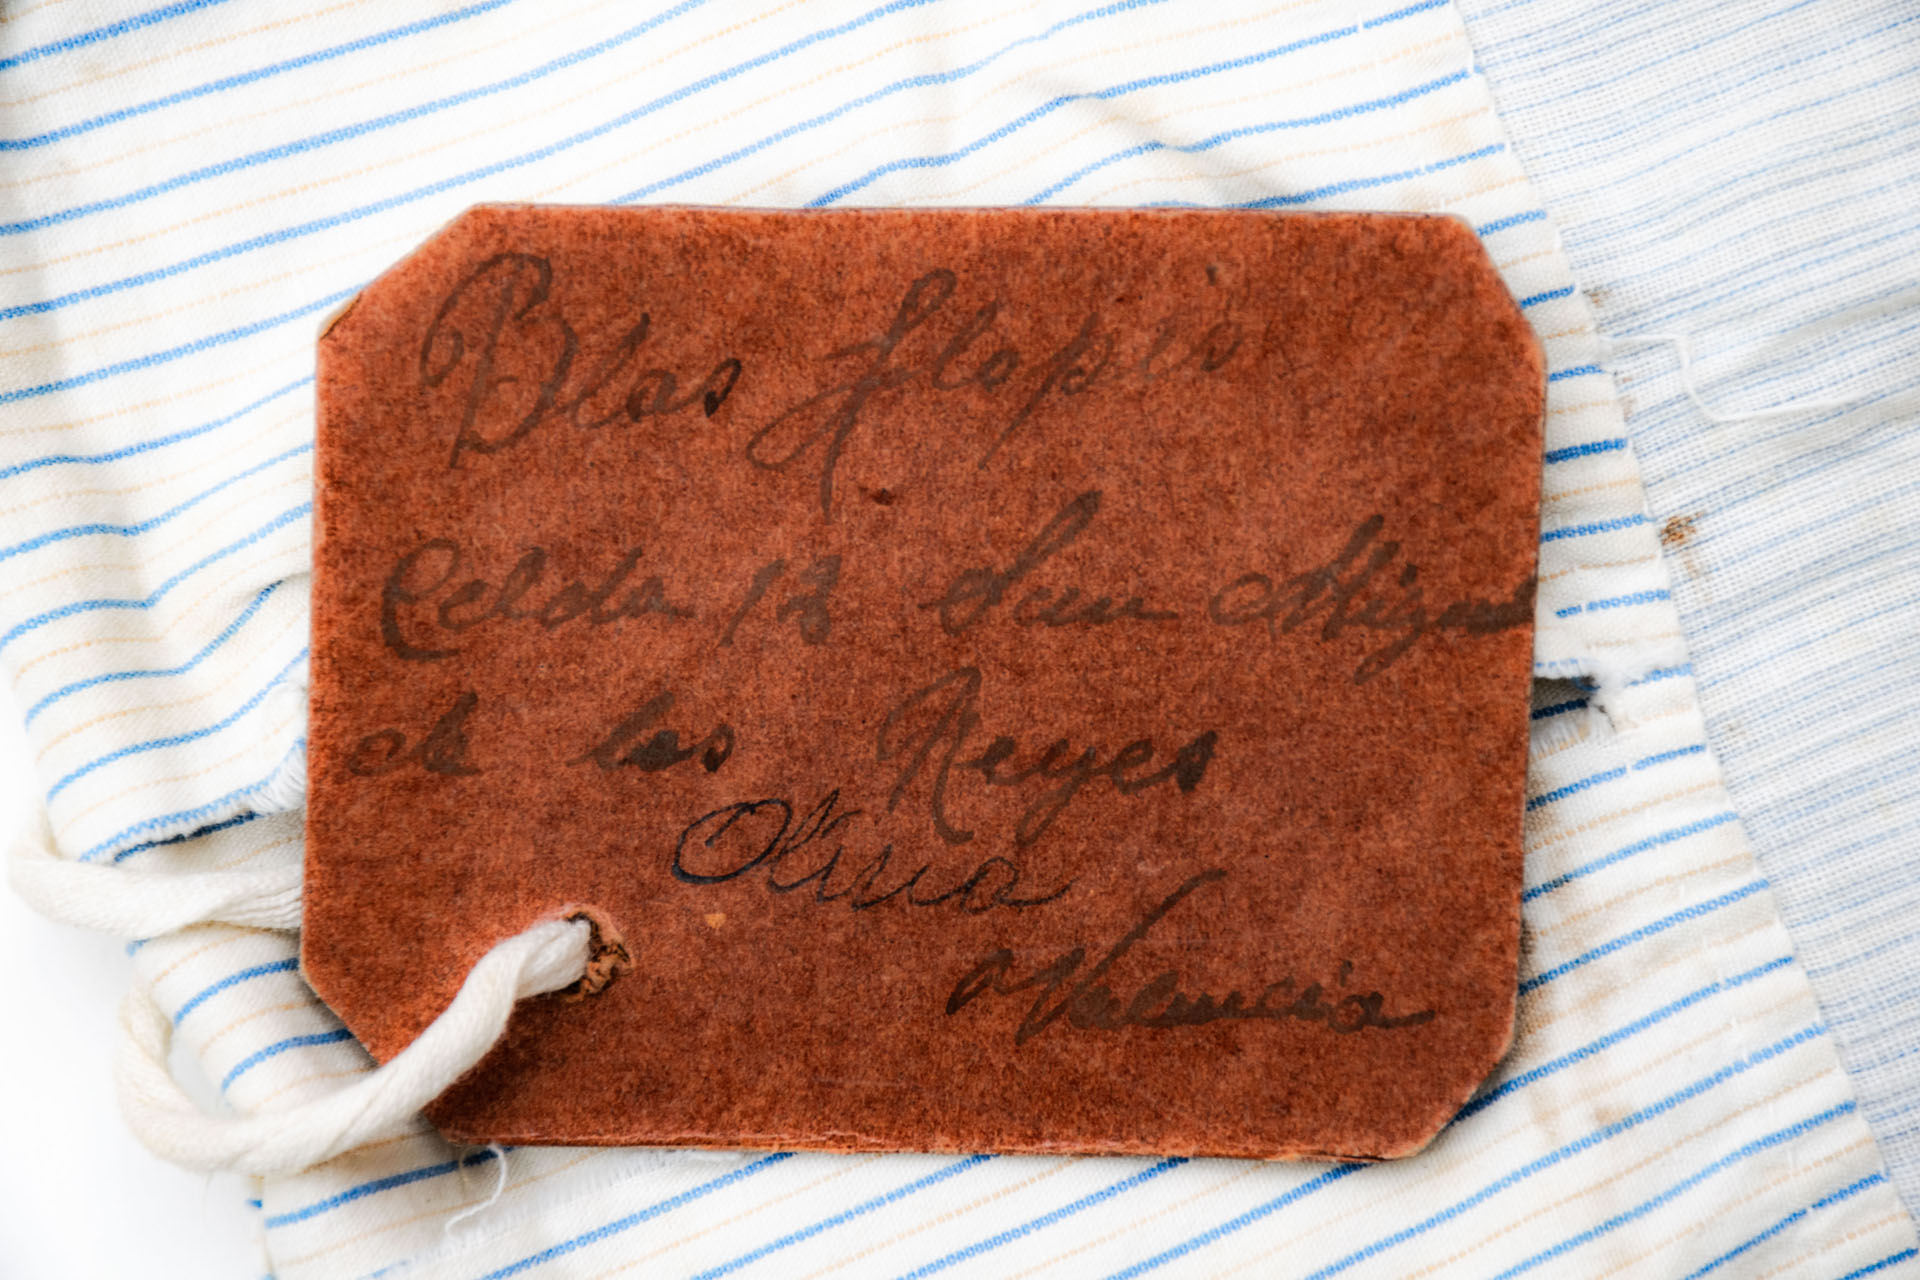 Blas Llopis
Celda 13 San Miguel
de los Reyes
Oliva
Valencia